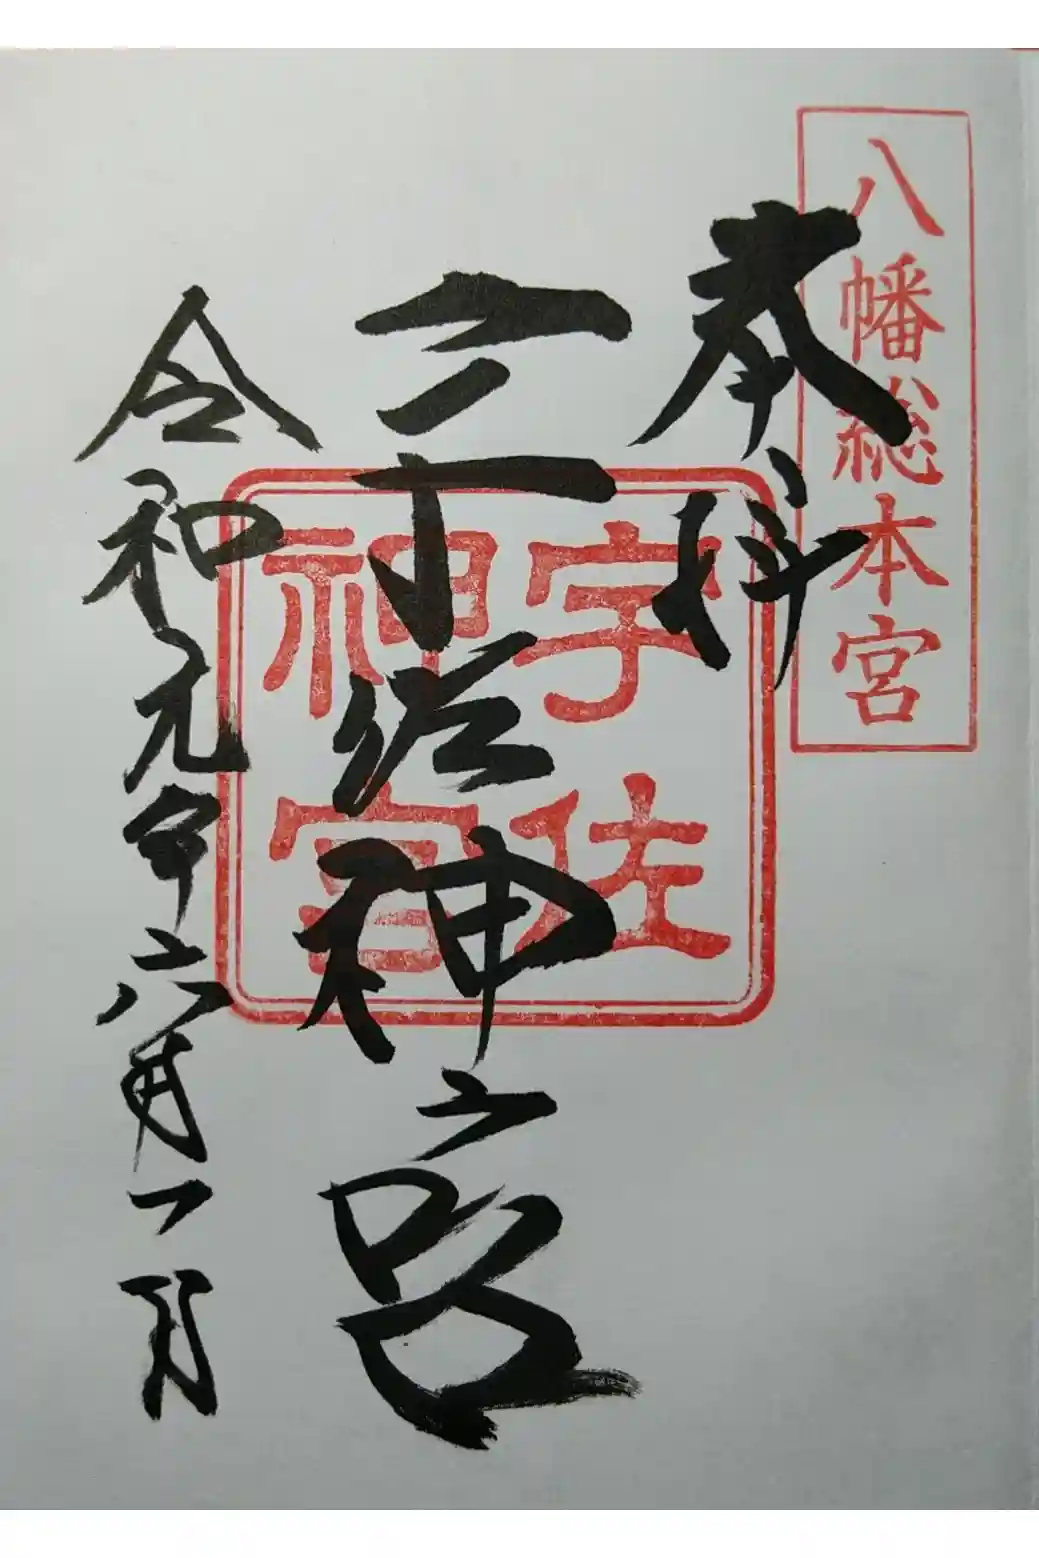 八幡総本宮
奉拝
宇佐
神宮
宇佐神宮
令和元年六月一日